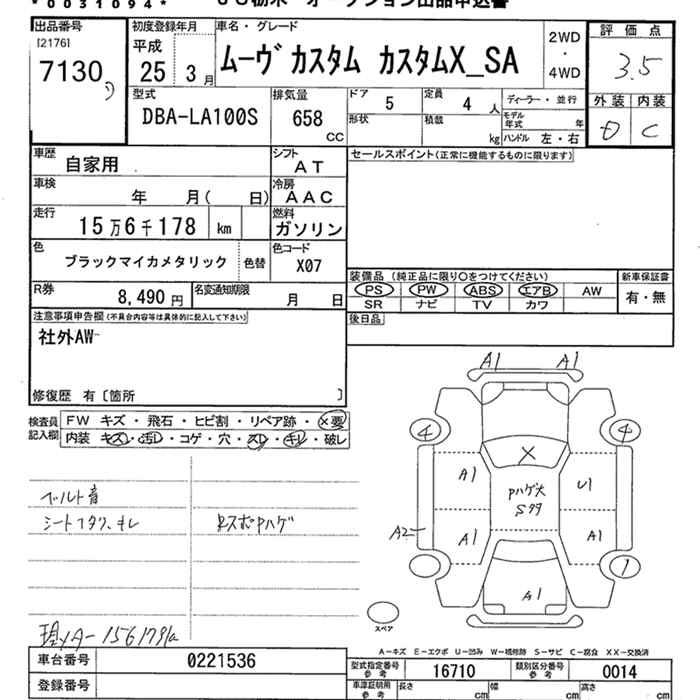 *0031094*
出品番号
[2176]
7130
初度登録年月
平成
25 3月
車名・グレード
ムーヴ カスタム カスタムX_SA
2WD
・
4WD
評価点
3.5
外装 内装
D C
型式
DBA-LA100S
排気量
658
CC
ドア
5
定員
4 人
ディーラー・並行
形状
積載
kg
モデル年式 年
ハンドル 左・右
車歴
自家用
シフト
AT
セールスポイント(正常に機能するものに限ります)
車検
年 月( 日)
冷房
AAC
走行
15万6千178 km
燃料
ガソリン
色
ブラックマイカメタリック
色替
色コード
X07
R券
8,490円
名変通知期限
月 日
装備品(純正品に限り○をつけてください)
PS PW ABS エアB AW
SR ナビ TV カワ
新車保証書
有・無
後日品
注意事項申告欄(不具合内容等は具体的に記入して下さい)
社外AW
修復歴 有〔箇所 〕
検査員記入欄
FW キズ・飛石・ヒビ割・リペア跡・×要
内装 キズ・汚レ・コゲ・穴・スレ・キレ・破レ
ベルト音
A1 A1
4 4
X
A1 Pハゲ大 U1
Sサ
A2 A1 A1
1
A1
スペア
A-キズ E-エクボ U-凹み W-補修跡 S-サビ C-腐食 XX-交換済
車台番号 0221536
登録番号
型式指定番号 参考 16710
類別区分番号 参考 0014
車庫証明用 参考 長さ cm 幅 cm 高さ cm